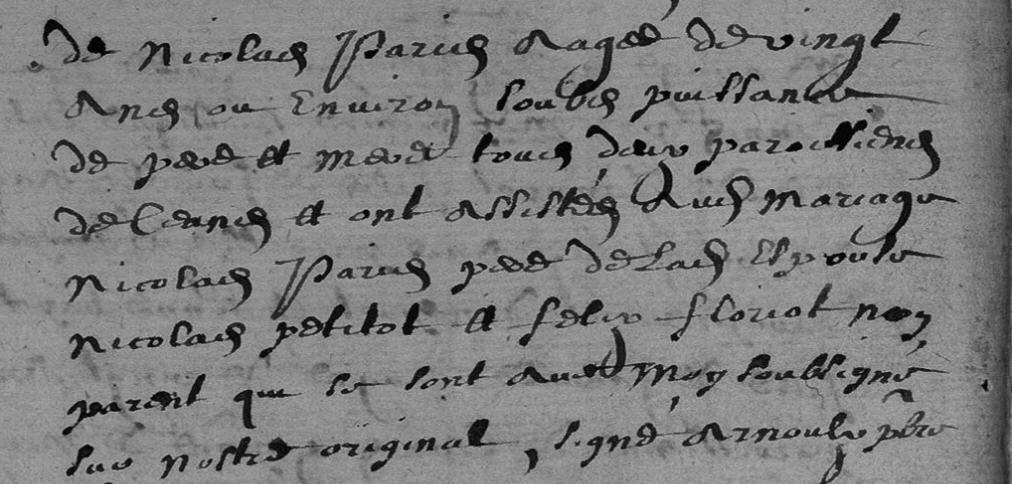 de Nicolas Paris aagee de vingt
ans ou Environ soubs puissance
de pere et mere tous deux paroissiens
de Ceans et ont assistés audit mariage
Nicolas Paris pere de lad Espouse
Nicolas petitot et felix floriot non
parent qui se sont avec Moy soubsigné
sur nostre original, signé Arnoulx pbre